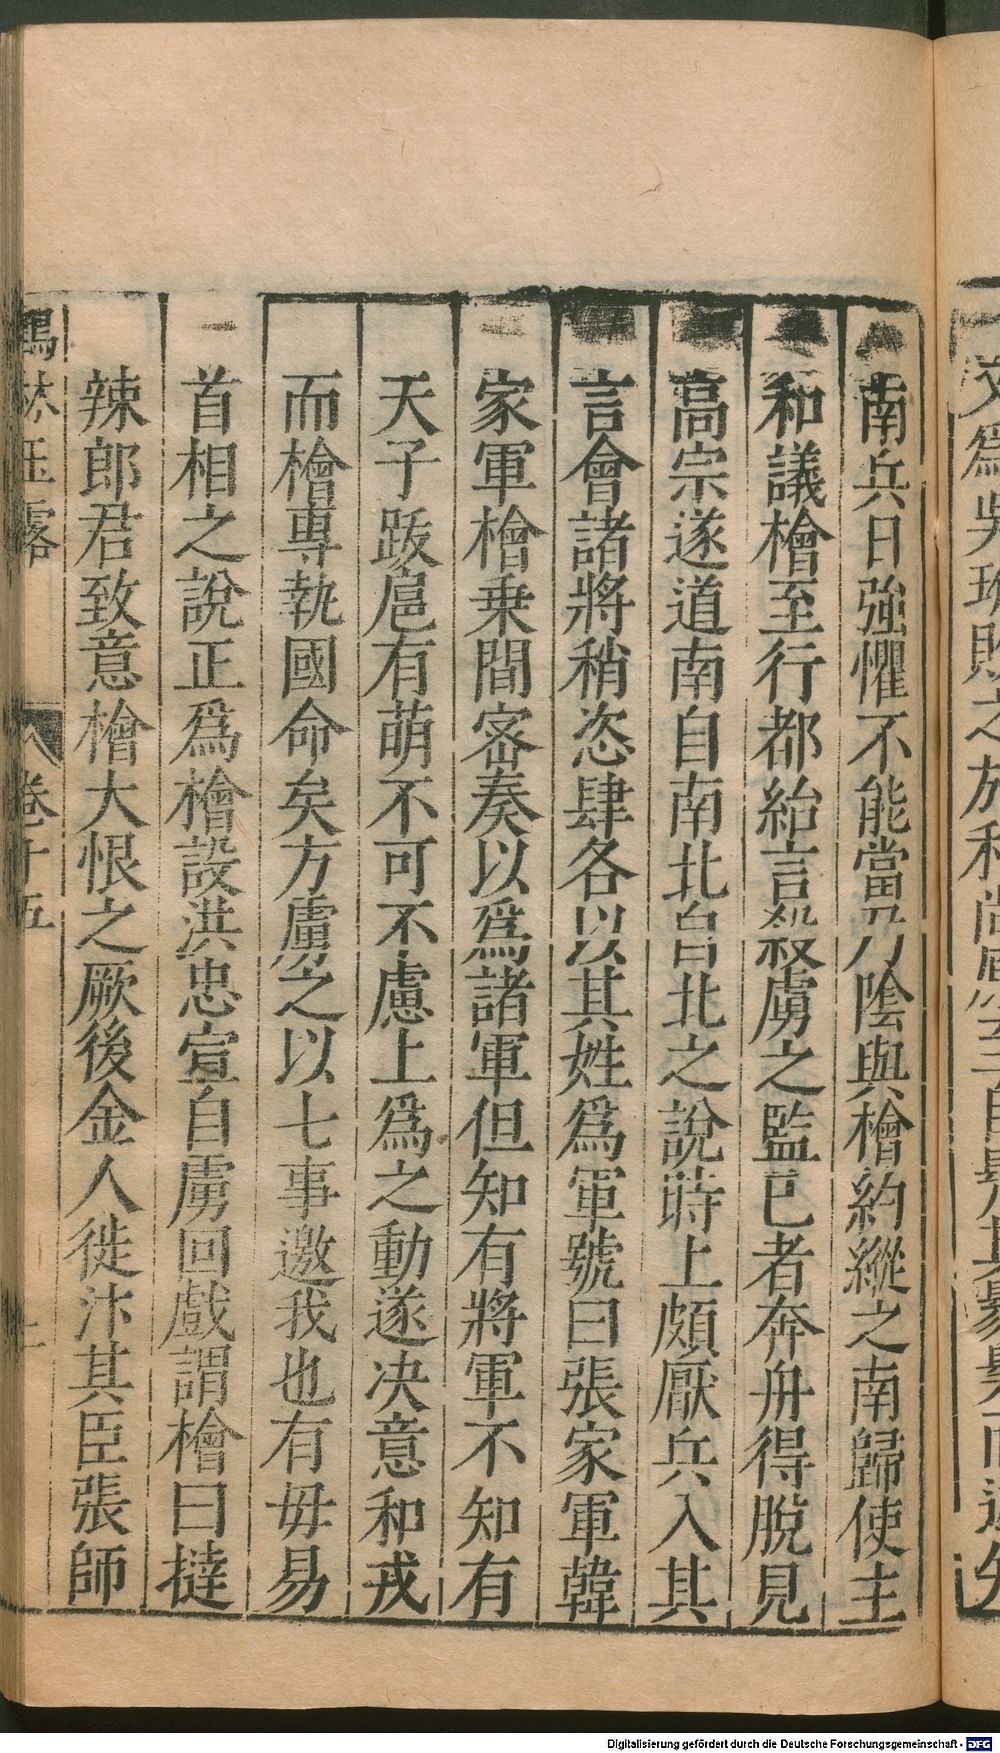 南兵日強懼不能當乃陰與檜約縱之南歸使主
和議檜至行都紿言殺虜之監已者奔舟得脫見
高宗遂道南自南北自北之說時上頗厭兵入其
言會諸將稍恣肆各以其姓爲軍號曰張家軍韓
家軍檜乗間密奏以爲諸軍但知有將軍不知有
天子跋扈有萌不可不慮上爲之動遂决意和戎
而檜專執國命矣方虜之以七事邀我也有毋易
首相之說正爲檜設洪忠宣自虜回戲謂檜曰撻
辣郎君致意檜大恨之厥後金人徙汴其臣張師
鶴林玉露 卷十五
Digitalisierung gefördert durch die Deutsche Forschungsgemeinschaft - DFG